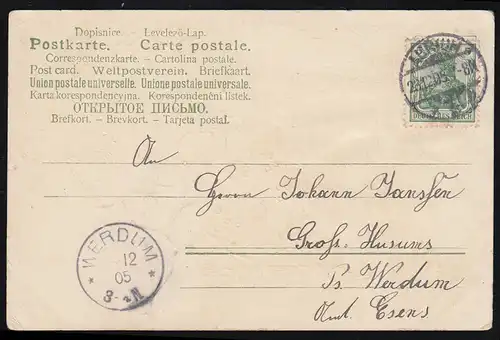 Dopisnice. - Levelező-Lap.
Postkarte. - Carte postale.
Correspondenzkarte. - Cartolina postale.
Post card. - Weltpostverein. - Briefkaart.
Union postale universelle. - Unione postale universale.
Karta korespondencyjna. - Korespondenční lístek.
ОТКРЫТОЕ ПИСЬМО.
Brefkort. - Brevkort. - Tarjeta postal.
DEUTSCHES REICH
An
Herrn Johann Janssen
Gross. Husums
Ps. Werdum
Amt. Esens
WERDUM
12
05
3-4N